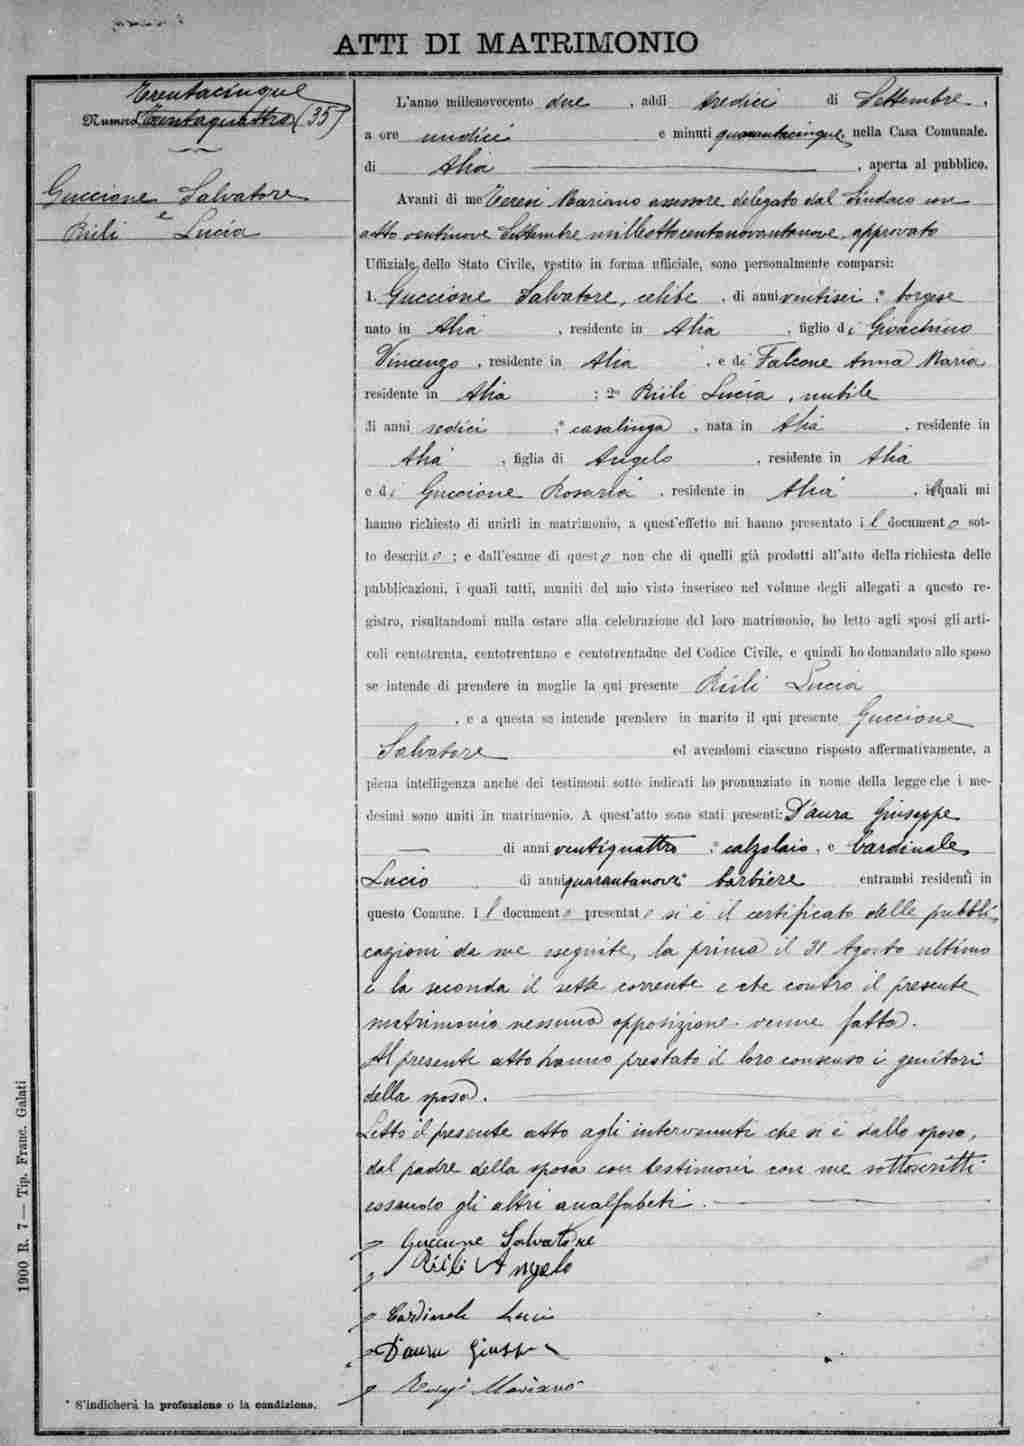 ATTI DI MATRIMONIO
Trentacinque
Numero Trentaquattro (35)
Guccione Salvatore
e
Riili Lucia
L'anno millenovecento due, addi tredici di Settembre,
a ore undici e minuti quarantacinque, nella Casa Comunale.
di Alia, aperta al pubblico.
Avanti di me Teresi Mariano assessore delegato dal Sindaco con
atto ventinove Settembre milleottocentonovantanove, approvato
Uffiziale dello Stato Civile, vestito in forma ufficiale, sono personalmente comparsi:
1. Guccione Salvatore, celibe, di anni ventisei * borgese
nato in Alia, residente in Alia, figlio di Gioachino
Vincenzo, residente in Alia, e di Falcone Anna Maria
residente in Alia ; 2° Riili Lucia, nubile
di anni sedici * casalinga, nata in Alia, residente in
Alia, figlia di Angelo, residente in Alia
e di Guccione Rosaria, residente in Alia, i quali mi
hanno richiesto di unirli in matrimonio, a quest'effetto mi hanno presentato il documento sot-
to descritto; e dall'esame di questo non che di quelli già prodotti all'atto della richiesta delle
pubblicazioni, i quali tutti, muniti del mio visto inserisco nel volume degli allegati a questo re-
gistro, risultandomi nulla ostare alla celebrazione del loro matrimonio, ho letto agli sposi gli arti-
coli centotrenta, centotrentuno e centotrentadue del Codice Civile, e quindi ho domandato allo sposo
se intende di prendere in moglie la qui presente Riili Lucia
, e a questa se intende prendere in marito il qui presente Guccione
Salvatore ed avendomi ciascuno risposto affermativamente, a
piena intelligenza anche dei testimoni sotto indicati ho pronunziato in nome della legge che i me-
desimi sono uniti in matrimonio. A quest'atto sono stati presenti: D'aura Giuseppe
di anni ventiquattro * calzolaio, e Cardinale
Lucio di anni quarantanove * barbiere entrambi residenti in
questo Comune. Il documento presentato si è il certificato delle pubbli
cazioni da me eseguite, la prima il 31 Agosto ultimo
e la seconda il sette corrente e che contro il presente
matrimonio nessuna opposizione venne fatta.
Al presente atto hanno prestato il loro consenso i genitori
della sposa.
Letto il presente atto agli intervenuti che si è dallo sposo,
dal padre della sposa con testimoni con me sottoscritti
essendo gli altri analfabeti.
Guccione Salvatore
Riili Angelo
Cardinale Lucio
D'aura Giuseppe
Mariano
* S'indicherà la professione o la condizione.
1900 R. 7 — Tip. Franc. Galati